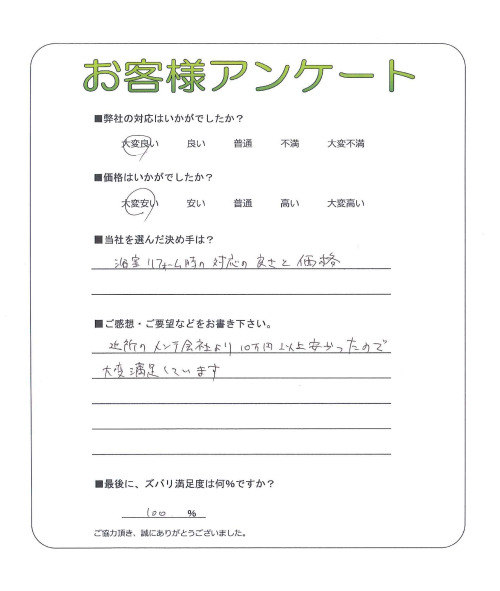 お客様アンケート
■弊社の対応はいかがでしたか？
大変良い 良い 普通 不満 大変不満
■価格はいかがでしたか？
大変安い 安い 普通 高い 大変高い
■当社を選んだ決め手は？
浴室リフォーム時の対応の良さと価格
■ご感想・ご要望などをお書き下さい。
近所のメンテ会社より10万円以上安かったので
大変満足しています
■最後に、ズバリ満足度は何%ですか？
100 %
ご協力頂き、誠にありがとうございました。